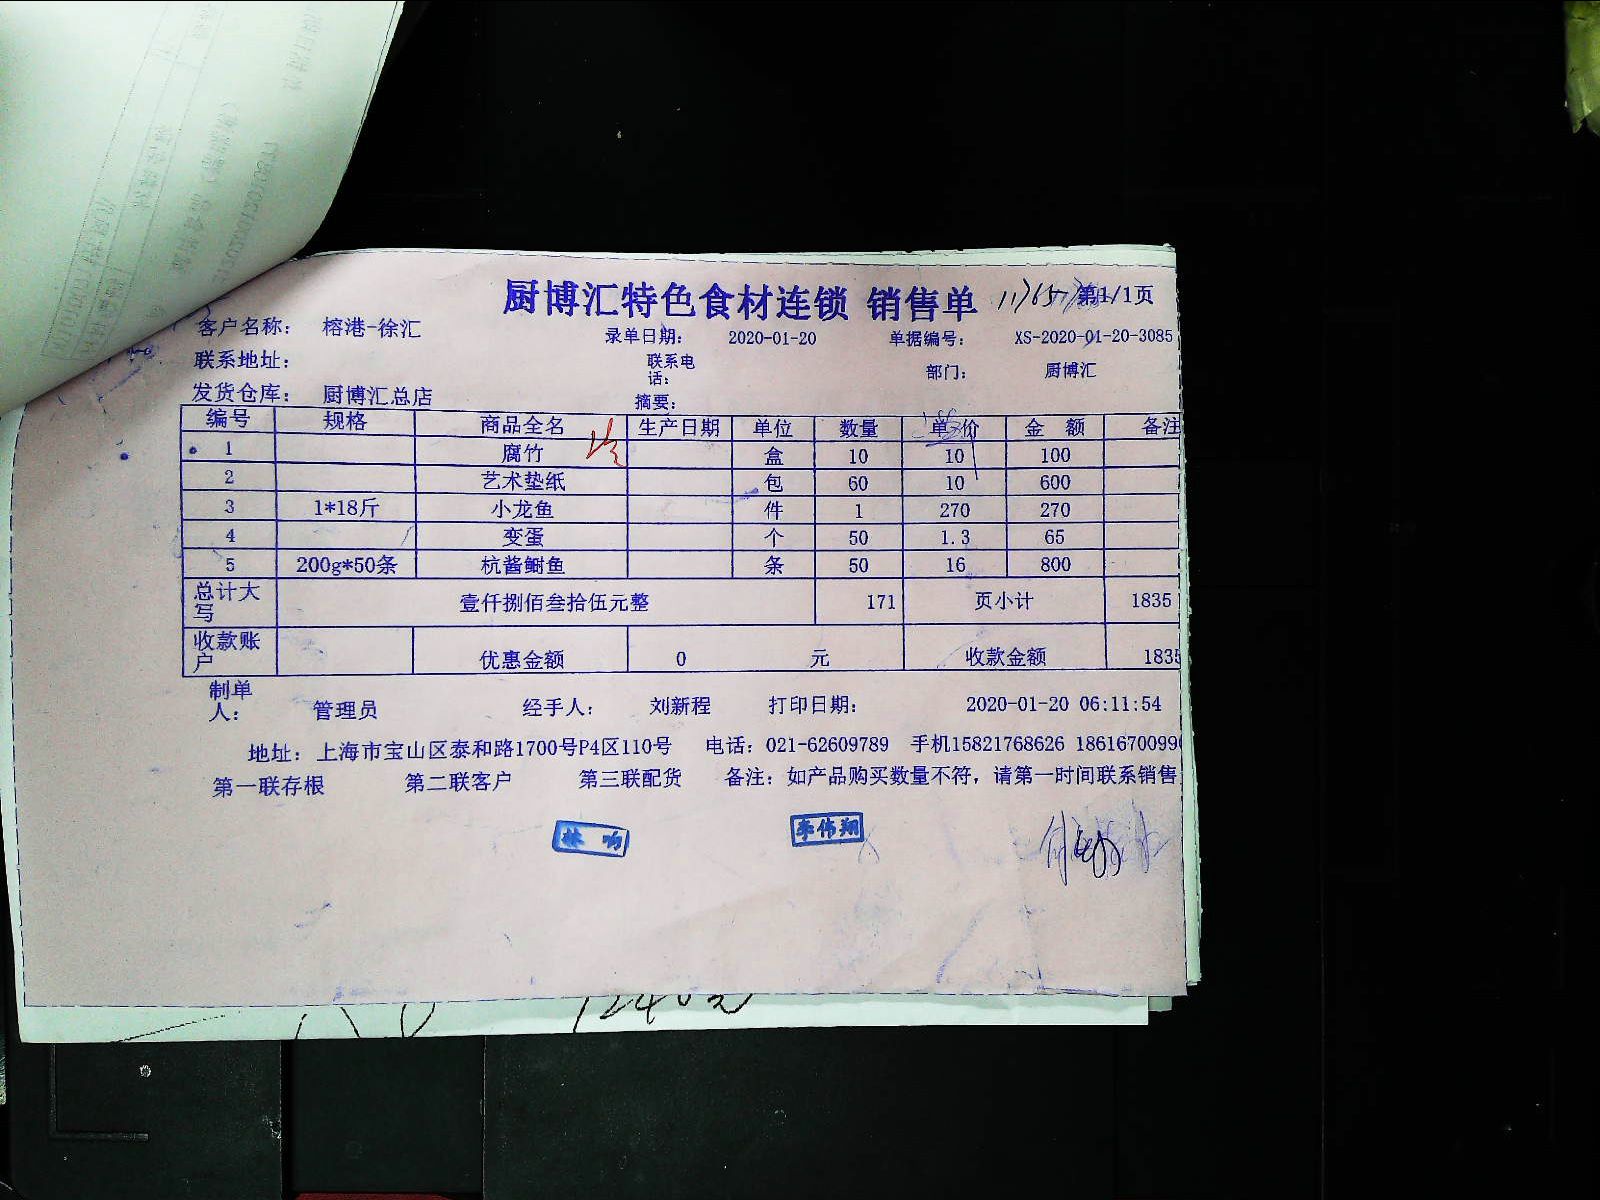 厨博汇特色食材连锁 销售单 第1/1页
客户名称： 榕港-徐汇 录单日期： 2020-01-20 单据编号： XS-2020-01-20-3085
联系地址： 联系电话： 部门： 厨博汇
发货仓库： 厨博汇总店 摘要：
编号 规格 商品全名 生产日期 单位 数量 单价 金 额 备注
1 腐竹 盒 10 10 100
2 艺术垫纸 包 60 10 600
3 1*18斤 小龙鱼 件 1 270 270
4 变蛋 个 50 1.3 65
5 200g*50条 杭酱鲥鱼 条 50 16 800
总计大写 壹仟捌佰叁拾伍元整 171 页小计 1835
收款账户 优惠金额 0 元 收款金额 1835
制单人： 管理员 经手人： 刘新程 打印日期： 2020-01-20 06:11:54
地址：上海市宝山区泰和路1700号P4区110号 电话：021-62609789 手机15821768626 1861670099
第一联存根 第二联客户 第三联配货 备注：如产品购买数量不符，请第一时间联系销售
李伟翔